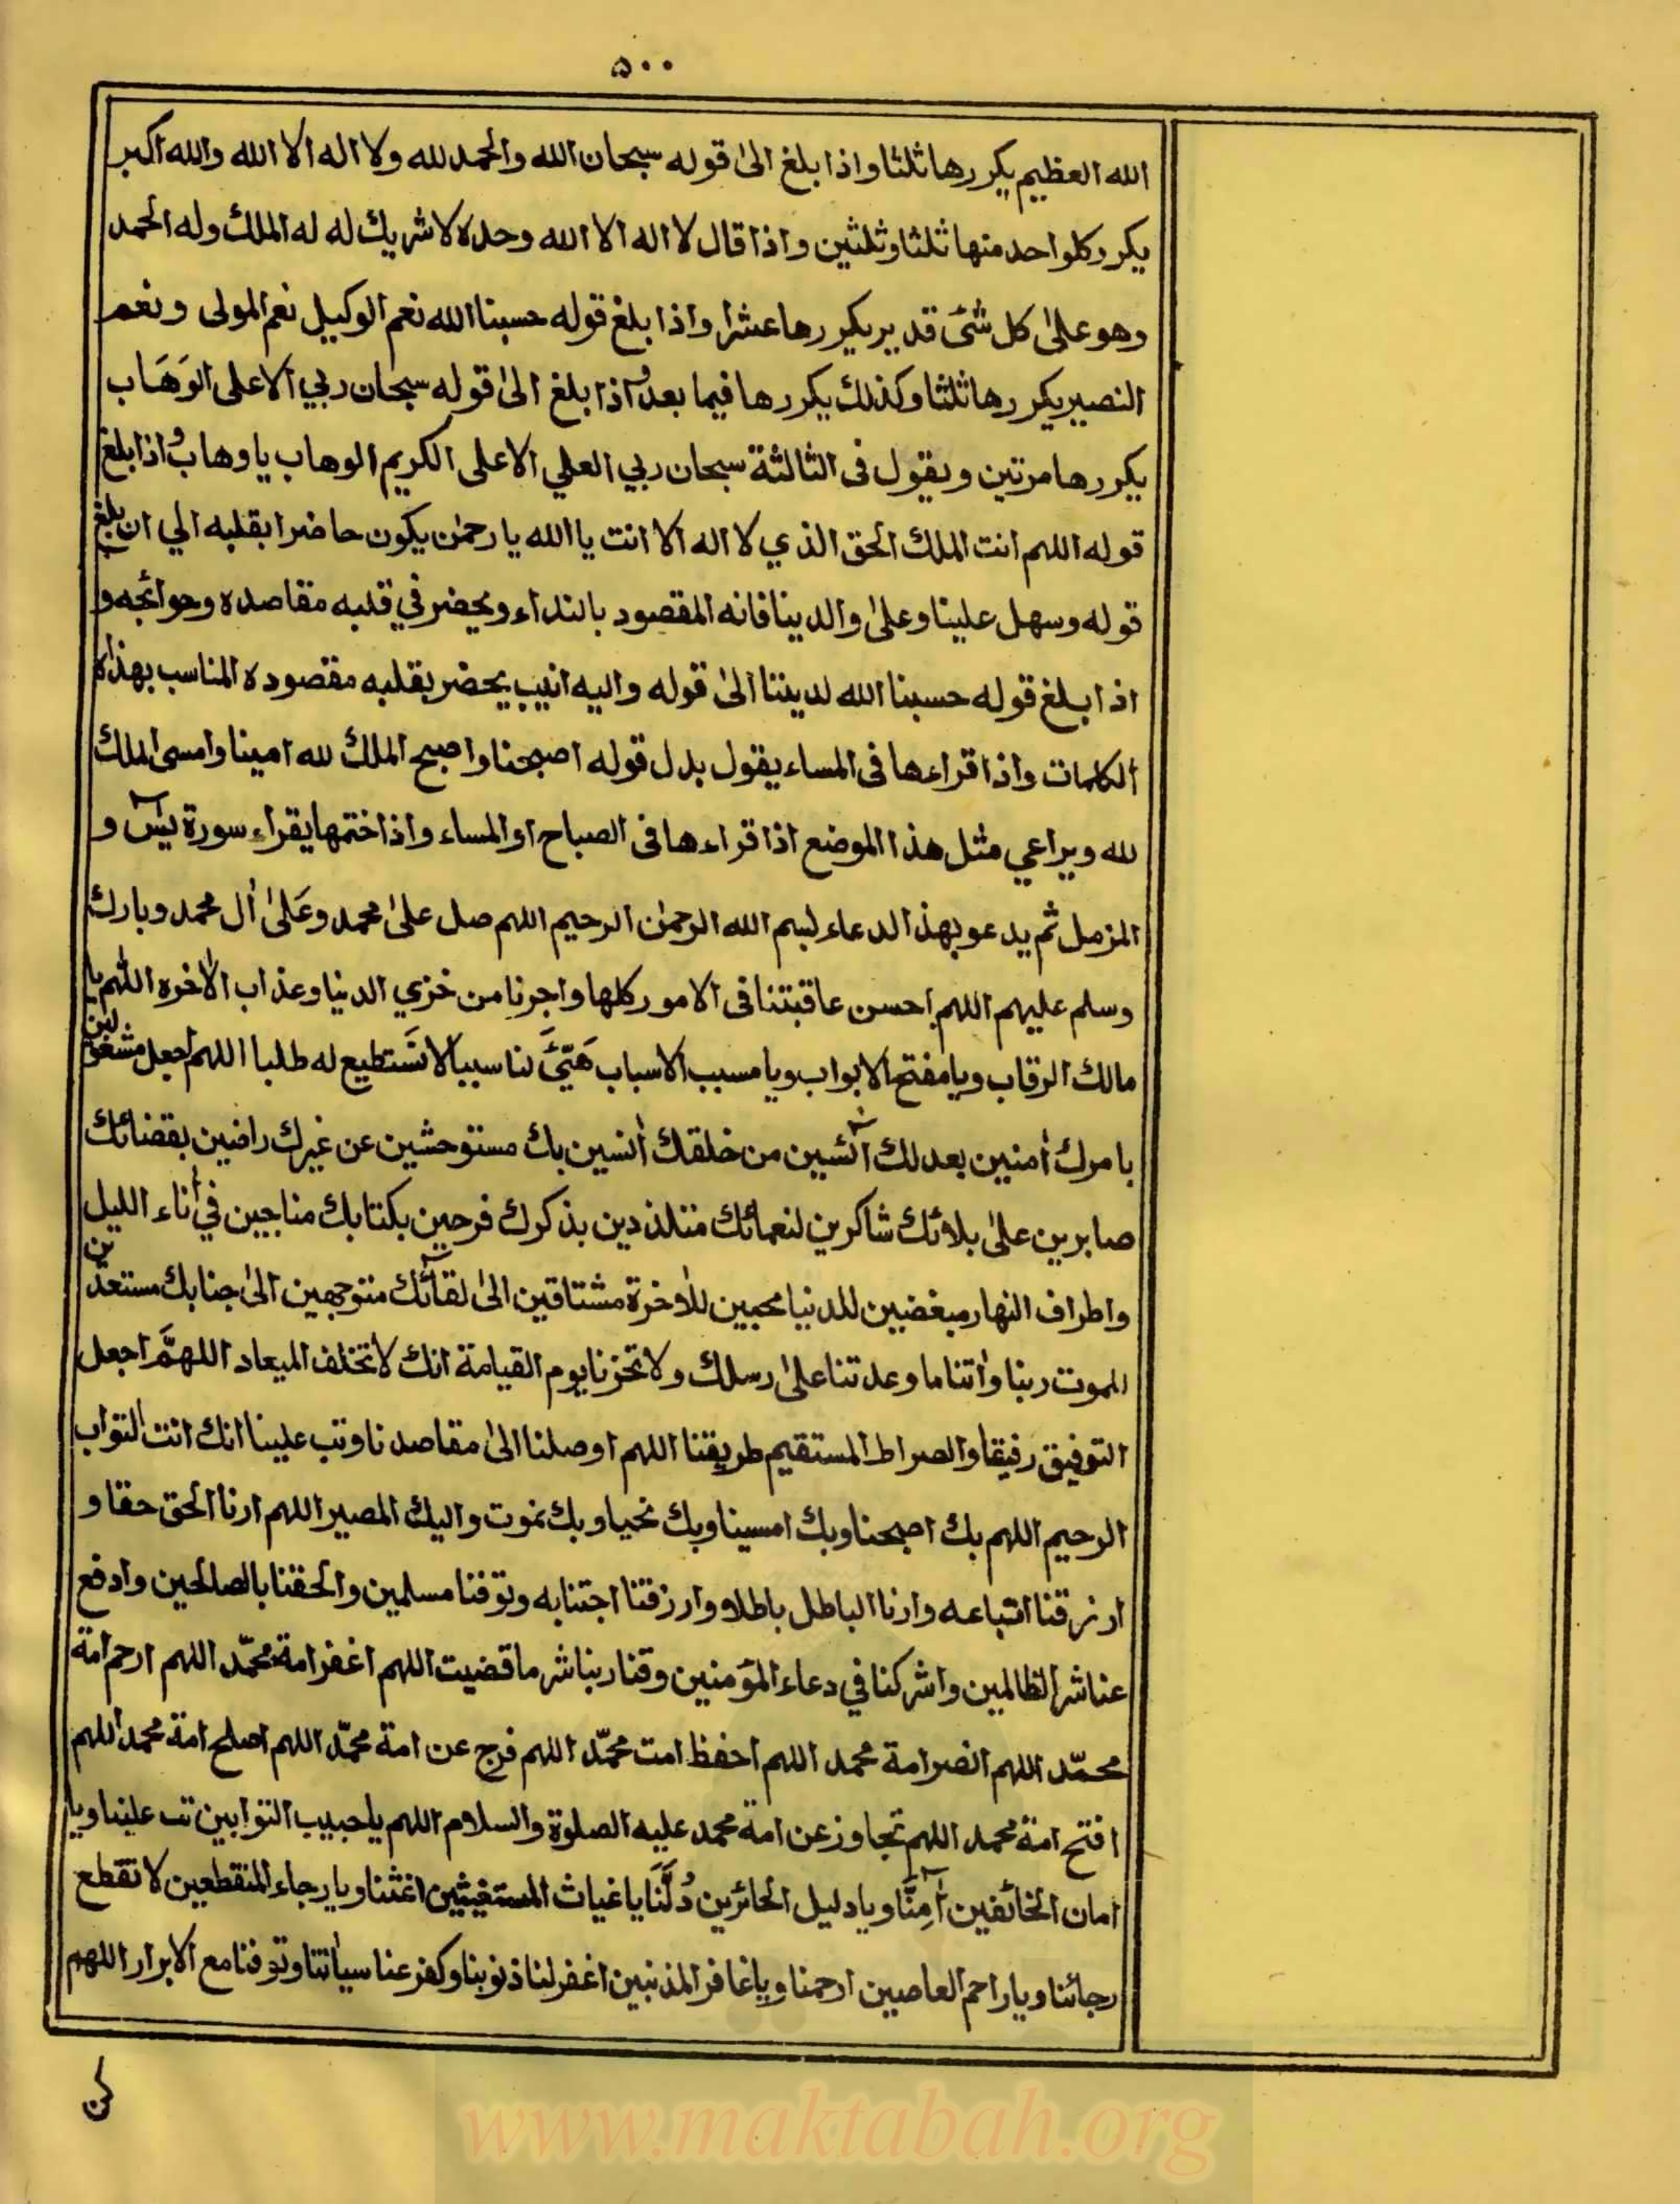 ٥٠٠
الله العظيم يكررها ثلثا واذا بلغ الىٰ قوله سبحان الله والحمد لله ولا اله الا الله والله اكبر
يكرر كلواحد منها ثلثا وثلثين واذا قال لا اله الا الله وحده لا شريك له له الملك وله الحمد
وهو علىٰ كل شئ قدير يكررها عشرا واذا بلغ قوله حسبنا الله نعم الوكيل نعم المولى ونعم
النصير يكررها ثلثا وكذلك يكررها فيما بعد واذا بلغ الىٰ قوله سبحان ربي الاعلى الوَهَاب
يكررها مرتين ويقول فى الثالثة سبحان ربي العلي الاعلى الكريم الوهاب يا وهاب واذا بلغ
قوله اللهم انت الملك الحق الذي لا اله الا انت يا الله يا رحمٰن يكون حاضرا بقلبه الي ان بلغ
قوله وسهل علينا وعلىٰ والدينا فانه المقصود بالنداء ويحضر في قلبه مقاصده وحوائجه و
اذا بلغ قوله حسبنا الله لديننا الىٰ قوله واليه انيب يحضر بقلبه مقصوده المناسب بهذه
الكلمات واذا قراءها فى المساء يقول بدل قوله اصبحنا واصبح الملك لله امينا وامسى الملك
لله ويراعي مثل هذا الموضع اذا قراءها فى الصباح او المساء واذا ختمها يقراء سورة يسٓ و
المزمل ثم يدعو بهذ الدعاء لبسم الله الرحمٰن الرحيم اللهم صل علىٰ محمد وعَلىٰ اٰل محمد وبارك
وسلم عليهم اللهم احسن عاقبتنا فى الامور كلها واجرنا من خزي الدنيا وعذاب الاٰخره اللهم يا
مالك الرقاب ويا مفتح الابواب ويا مسبب الاسباب هَيِّئَ لنا سببا لا نَستطيع له طلبا اللهم اجعل مشغولين
بامرك اٰمنين بعدلك اٰئسين من خلقك اٰنسين بك مستوحشين عن غيرك راضين بقضائك
صابرين علىٰ بلائك شاكرين لنعمائك متلذدين بذكرك فرحين بكتابك مناجين في اٰناء الليل
واطراف النهار مبغضين للدنيا محبين للاٰخرة مشتاقين الىٰ لقائك متوجهين الىٰ جنابك مستعدين
للموت ربنا واٰتنا ما وعدتنا علىٰ رسلك ولا تخزنا يوم القيامة انك لا تخلف الميعاد اللهمَّ اجعل
التوفيق رفيقا والصراط المستقيم طريقنا اللهم اوصلنا الىٰ مقاصدنا وتب علينا انك انت التواب
الرحيم اللهم بك اصبحنا وبك امسينا وبك نحيا وبك نموت واليك المصير اللهم ارنا الحق حقا و
ارزقنا اتباعه وارنا الباطل باطلا وارزقنا اجتنابه وتوفنا مسلمين والحقنا بالصالحين وادفع
عنا شر الظالمين واشركنا في دعاء المؤمنين وقنا ربنا شر ما قضيت اللهم اغفر امة محمّد اللهم ارحم امة
محمّد اللهم انصر امة محمد اللهم احفظ امت محمّد اللهم فرج عن امة محمّد اللهم اصلح امة محمد اللهم
افتح امة محمد اللهم تجاوز عن امة محمد عليه الصلوة والسلام اللهم يا حبيب التوابين تب علينا ويا
امان الخائفين اٰمِنَّا ويا دليل الحائرين دُلَّنَا يا غياث المستغيثين اغثنا ويا رجاء المنقطعين لا تقطع
رجائنا ويا راحم العاصين ارحمنا ويا غافر المذنبين اغفر لنا ذنوبنا وكفر عنا سياٰتنا وتوفنا مع الابرار اللهم
www.maktabah.org